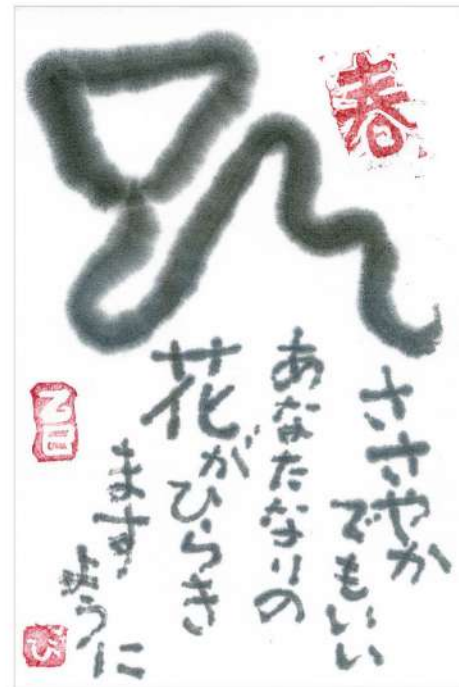 春
ささやか
でもいい
あなたなりの
花がひらき
ます
ように
乙巳
ひ